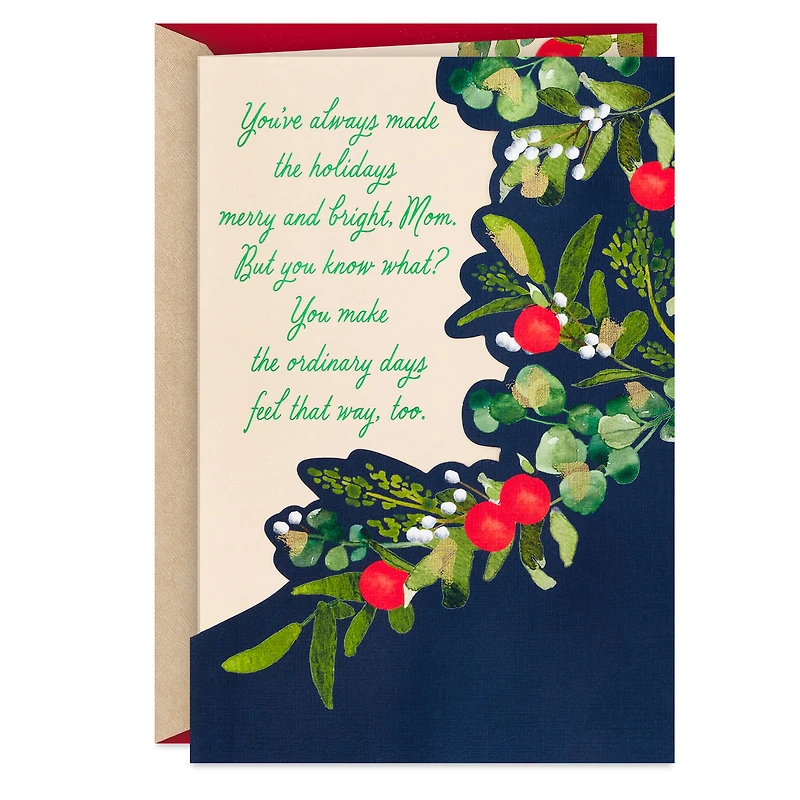 You've always made
the holidays
merry and bright, Mom.
But you know what?
You make
the ordinary days
feel that way, too.